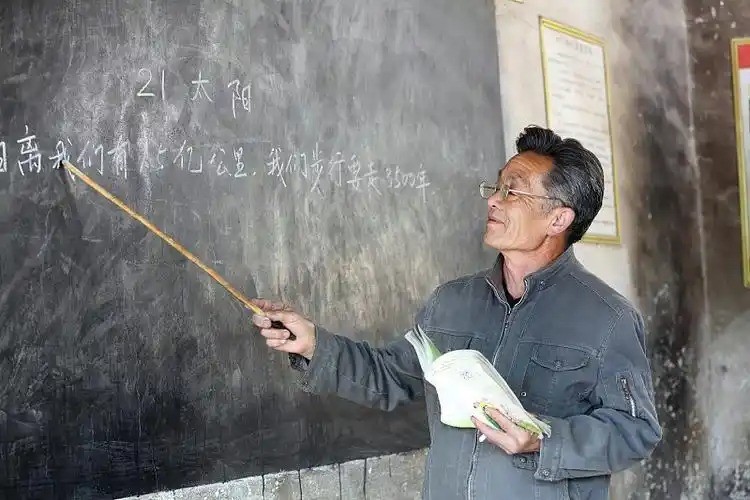 21 太阳
距离我们有1.5亿公里,我们步行要走3500年.